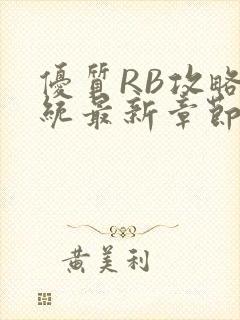 優質RB攻略
統最新章節
黃美利